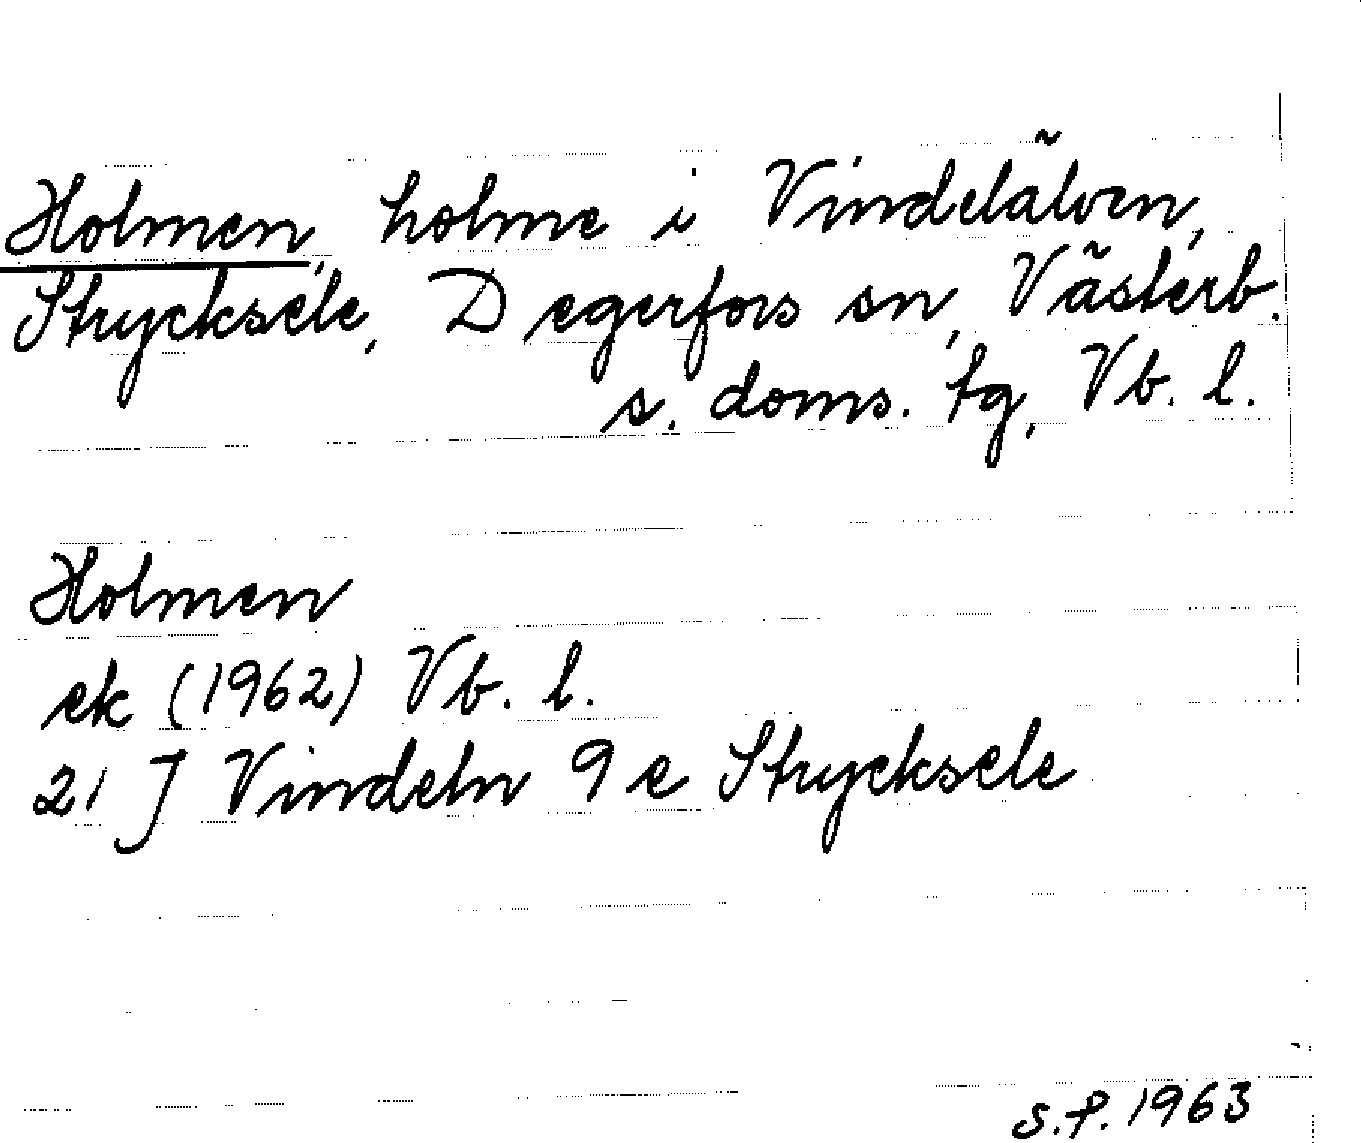 Holmen, holme i Vindelälven,
Strycksele, Degerfors sn, Västerb.
s. doms. tg, Vb. l.
Holmen
ek (1962) Vb. l.
21 J Vindeln 9 e Strycksele
S.P. 1963